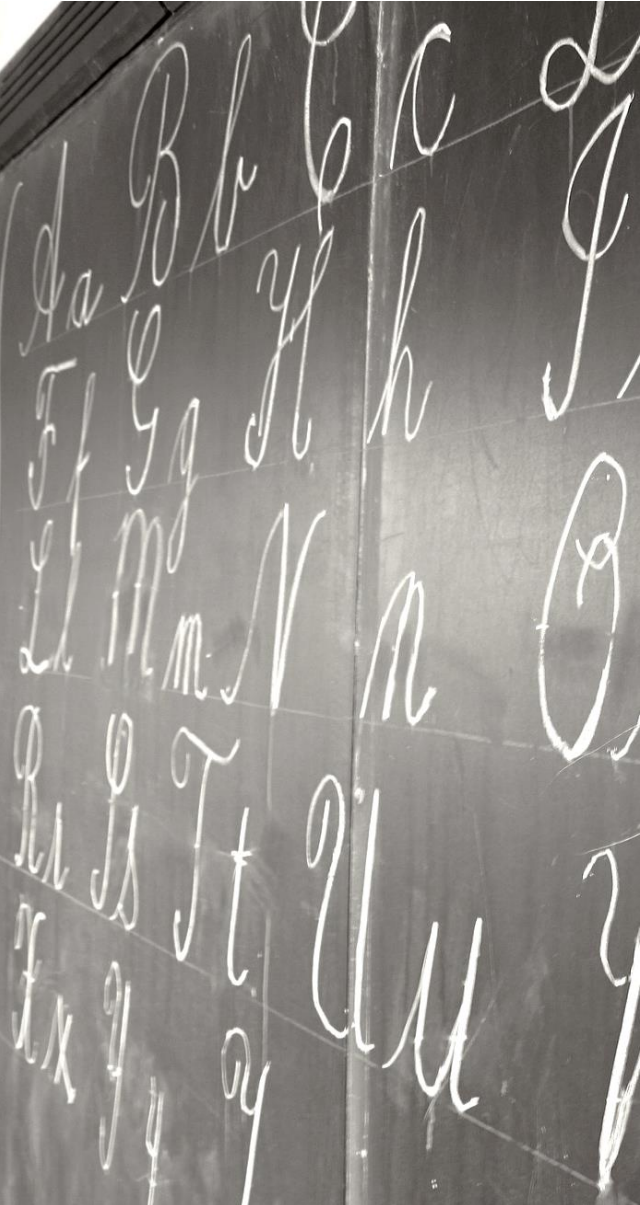 A a B b C c D
F f G g H h I
L l M m N n O
R r S s T t U u V
X x Y y y